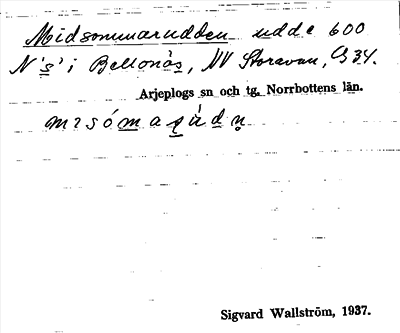 Midsommarudden udde 600
N 's' i Bellonäs, NV Storavan, G 34.
Arjeplogs sn och tg. Norrbottens län.
Sigvard Wallström, 1937.